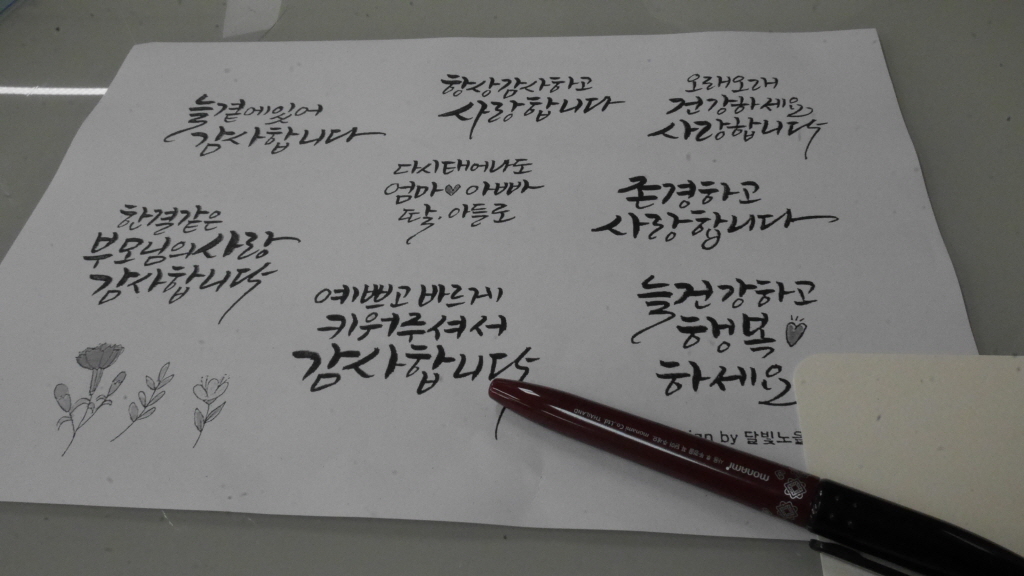 늘곁에있어
감사합니다
항상감사하고
사랑합니다
오래오래
건강하세요
사랑합니다
다시태어나도
엄마♥아빠
딸·아들로
존경하고
사랑합니다
한결같은
부모님의사랑
감사합니다
예쁘고바르게
키워주셔서
감사합니다
늘건강하고
행복
하세요
by 달빛노을
monami
monami Co.,Ltd THAILAND